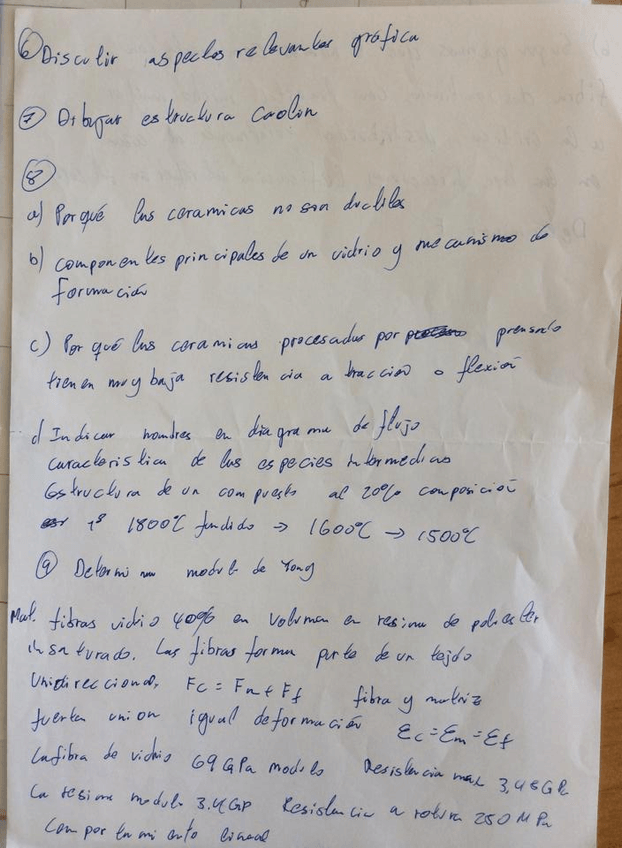 ⑥ Discutir aspectos relevantes gráfica
⑦ Dibujar estructura Caolin
⑧
a) Por qué las ceramicas no son ductiles
b) componentes principales de un vidrio y mecanismo de
formación
c) Por qué las ceramicas procesadas por prensado
tienen muy baja resistencia a tracción o flexión
d) Indicar nombres en diagrama de flujo
caracteristica de las especies intermedias
Estructura de un compuesto al 20% composición
1º 1800ºC fundido → 1600ºC → 1500ºC
⑨ Determi modulo de Yong
Mat. fibras vidrio 40% en volumen en resina de poliester
insaturado. Las fibras forma parte de un tejido
Unidireccional, Fc = Fm + Ff fibra y matriz
fuerte union igual deformación Ɛc = Ɛm = Ɛf
La fibra de vidrio 69 GPa modulo Resistencia max 3,45 GPa
La resina modulo 3.4 GP Resistencia a rotura 250 MPa
Comportamiento lineal